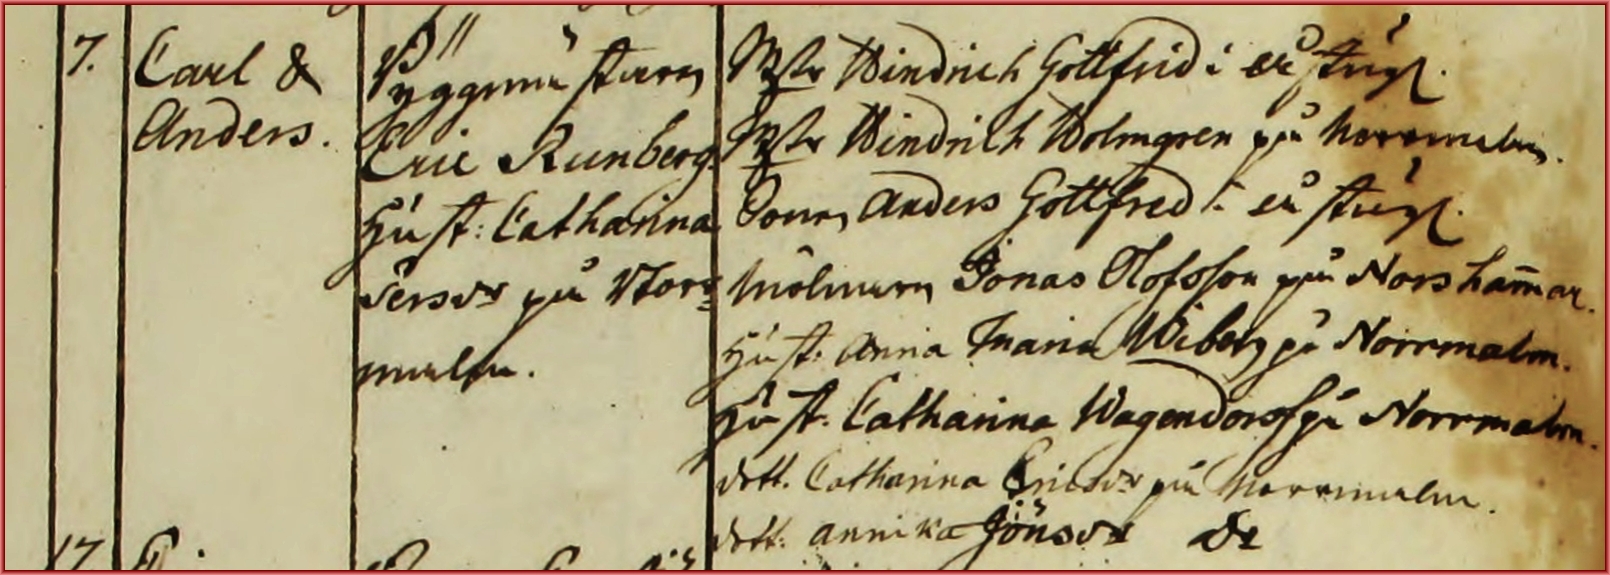 7.
Carl &
Anders.
Byggmästaren
Eric Runberg.
Hust: Catharina
Persdr på Norr=
malm.
Mstr Hindrich Gottfrid i
Mstr Hindrich Holmgren på Norrmalm.
Sonen Anders Gottfred i
Mölnaren Jonas Olofsson på Norshammar.
Hust: Anna Maria Wiberg på Norrmalm.
Hust. Catharina Wagendorf på Norrmalm.
dott. Catharina Ericsdr på Norrmalm.
dott: Annika Jönsdr do
17